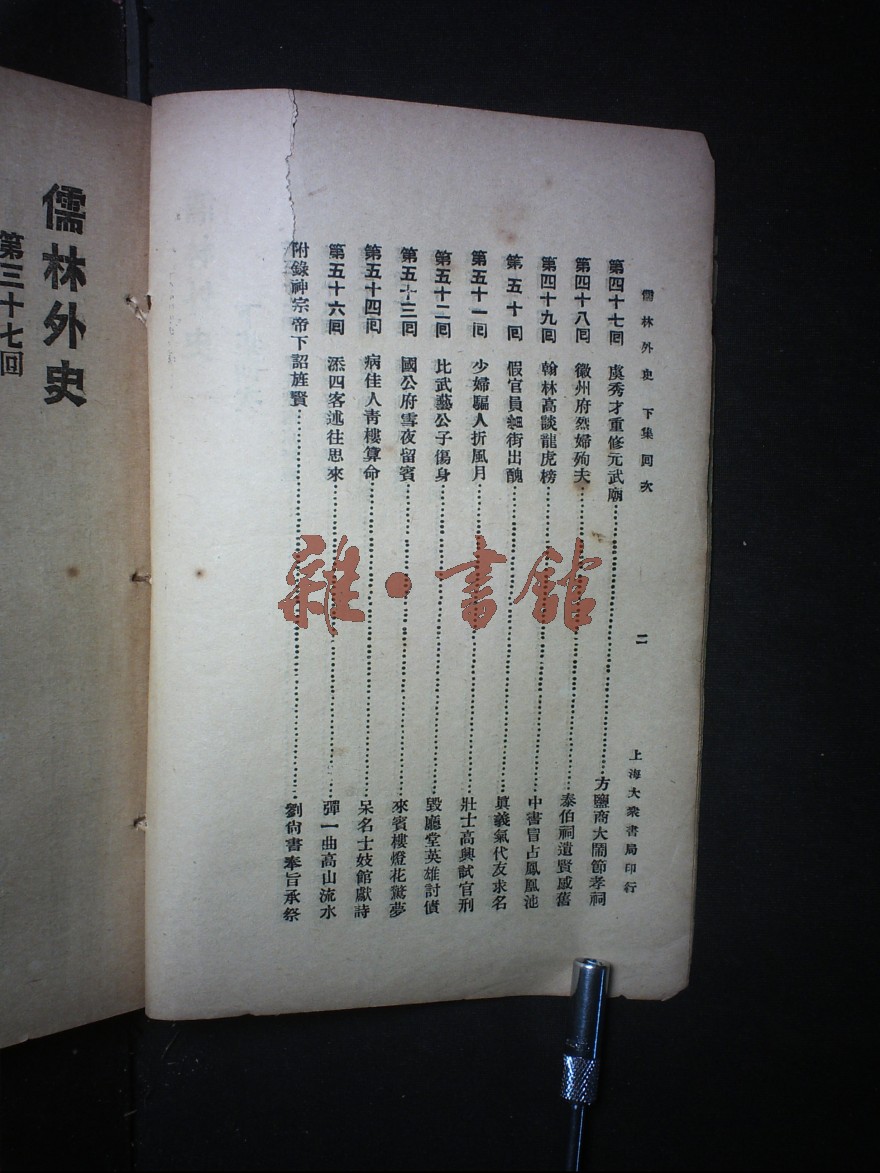 儒林外史 下集 回次 二 上海大衆書局印行
第四十七回 虞秀才重修元武廟…………方鹽商大鬧節孝祠
第四十八回 徽州府烈婦殉夫…………泰伯祠遺賢感舊
第四十九回 翰林高談龍虎榜…………中書冒占鳳凰池
第五十回 假官員街出醜…………眞義氣代友求名
第五十一回 少婦騙人折風月…………壯士高興試官刑
第五十二回 比武藝公子傷身…………毀廳堂英雄討債
第五十三回 國公府雪夜留賓…………來賓樓燈花驚夢
第五十四回 病佳人靑樓算命…………呆名士妓館獻詩
第五十六回 添四客述往思來…………彈一曲高山流水
附錄神宗帝下詔旌賢…………劉尙書奉旨承祭
儒林外史
第三十七回
雜·書館